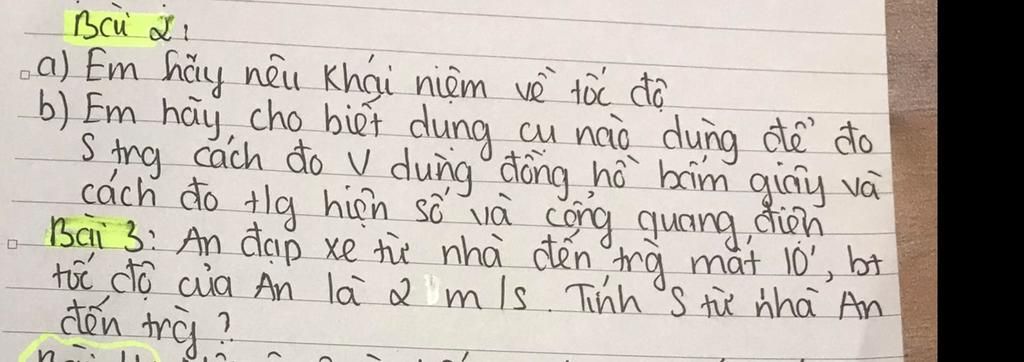 Bài 2:
a) Em hãy nêu khái niệm về tốc độ
b) Em hãy cho biết dụng cu nào dùng để đo
S trg cách đo V dùng đồng hồ bấm giây và
cách đo tlg hiện số và cổng quang điện
Bài 3: An đạp xe từ nhà đến trg mất 10', bt
tốc độ của An là 2 m/s. Tính S từ nhà An
đến trg?